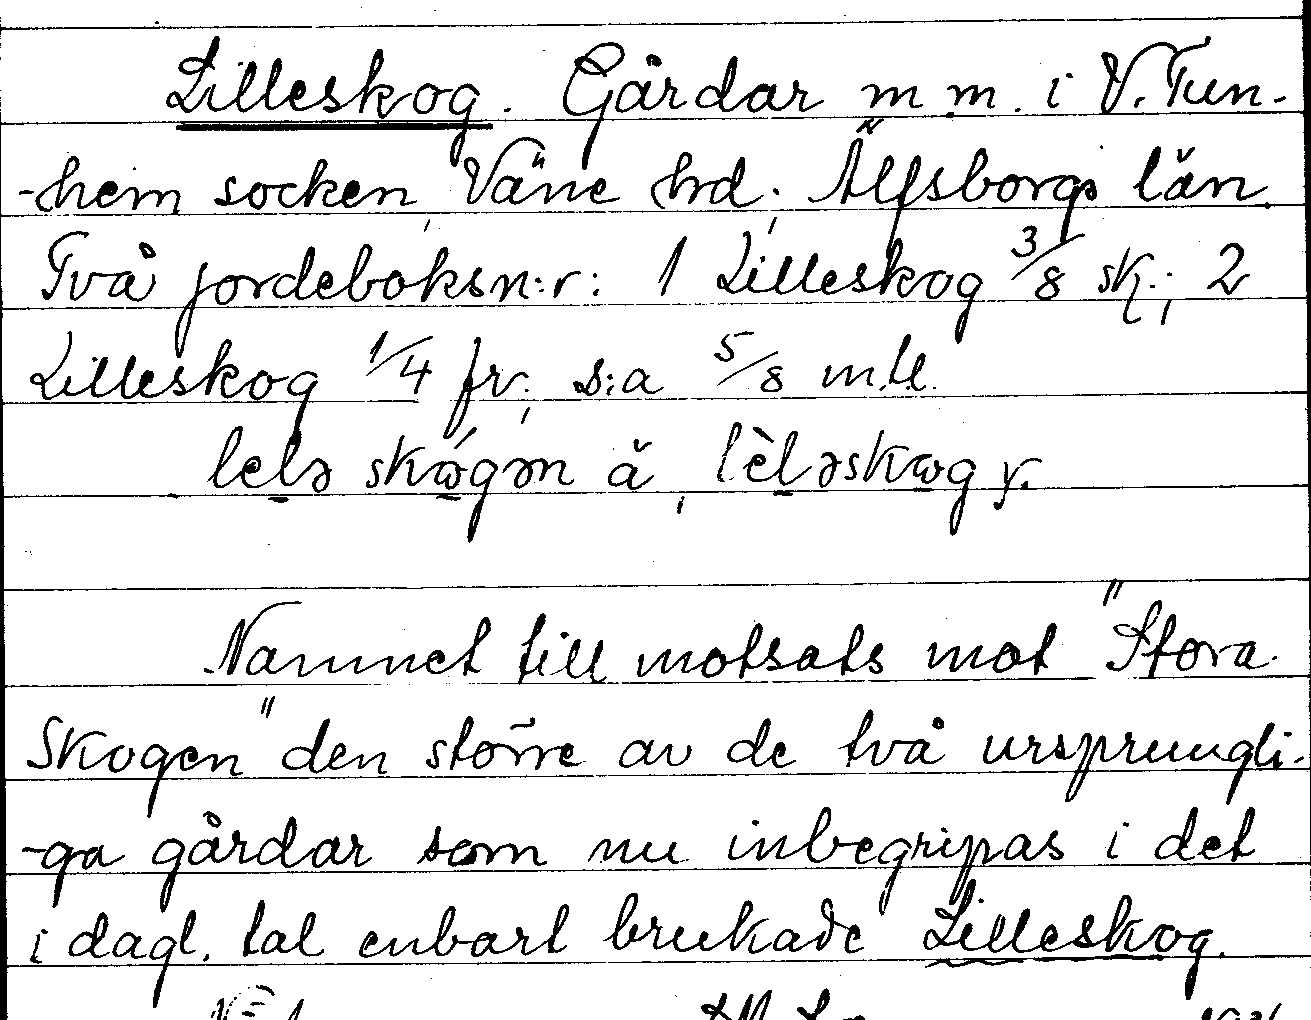 Lilleskog. Gårdar m. m. i V. Tun-
-hem socken, Väne hrd; Älfsborgs län.
Två jordeboksn:r: 1 Lilleskog 3/8 sk.; 2
Lilleskog 1/4 fr.; s:a 5/8 mtl.
lelə skógən ä, lèləskog y.
Namnet till motsats mot "Stora
Skogen" den större av de två ursprungli-
-ga gårdar som nu inbegripas i det
i dagl. tal enbart brukade Lilleskog.